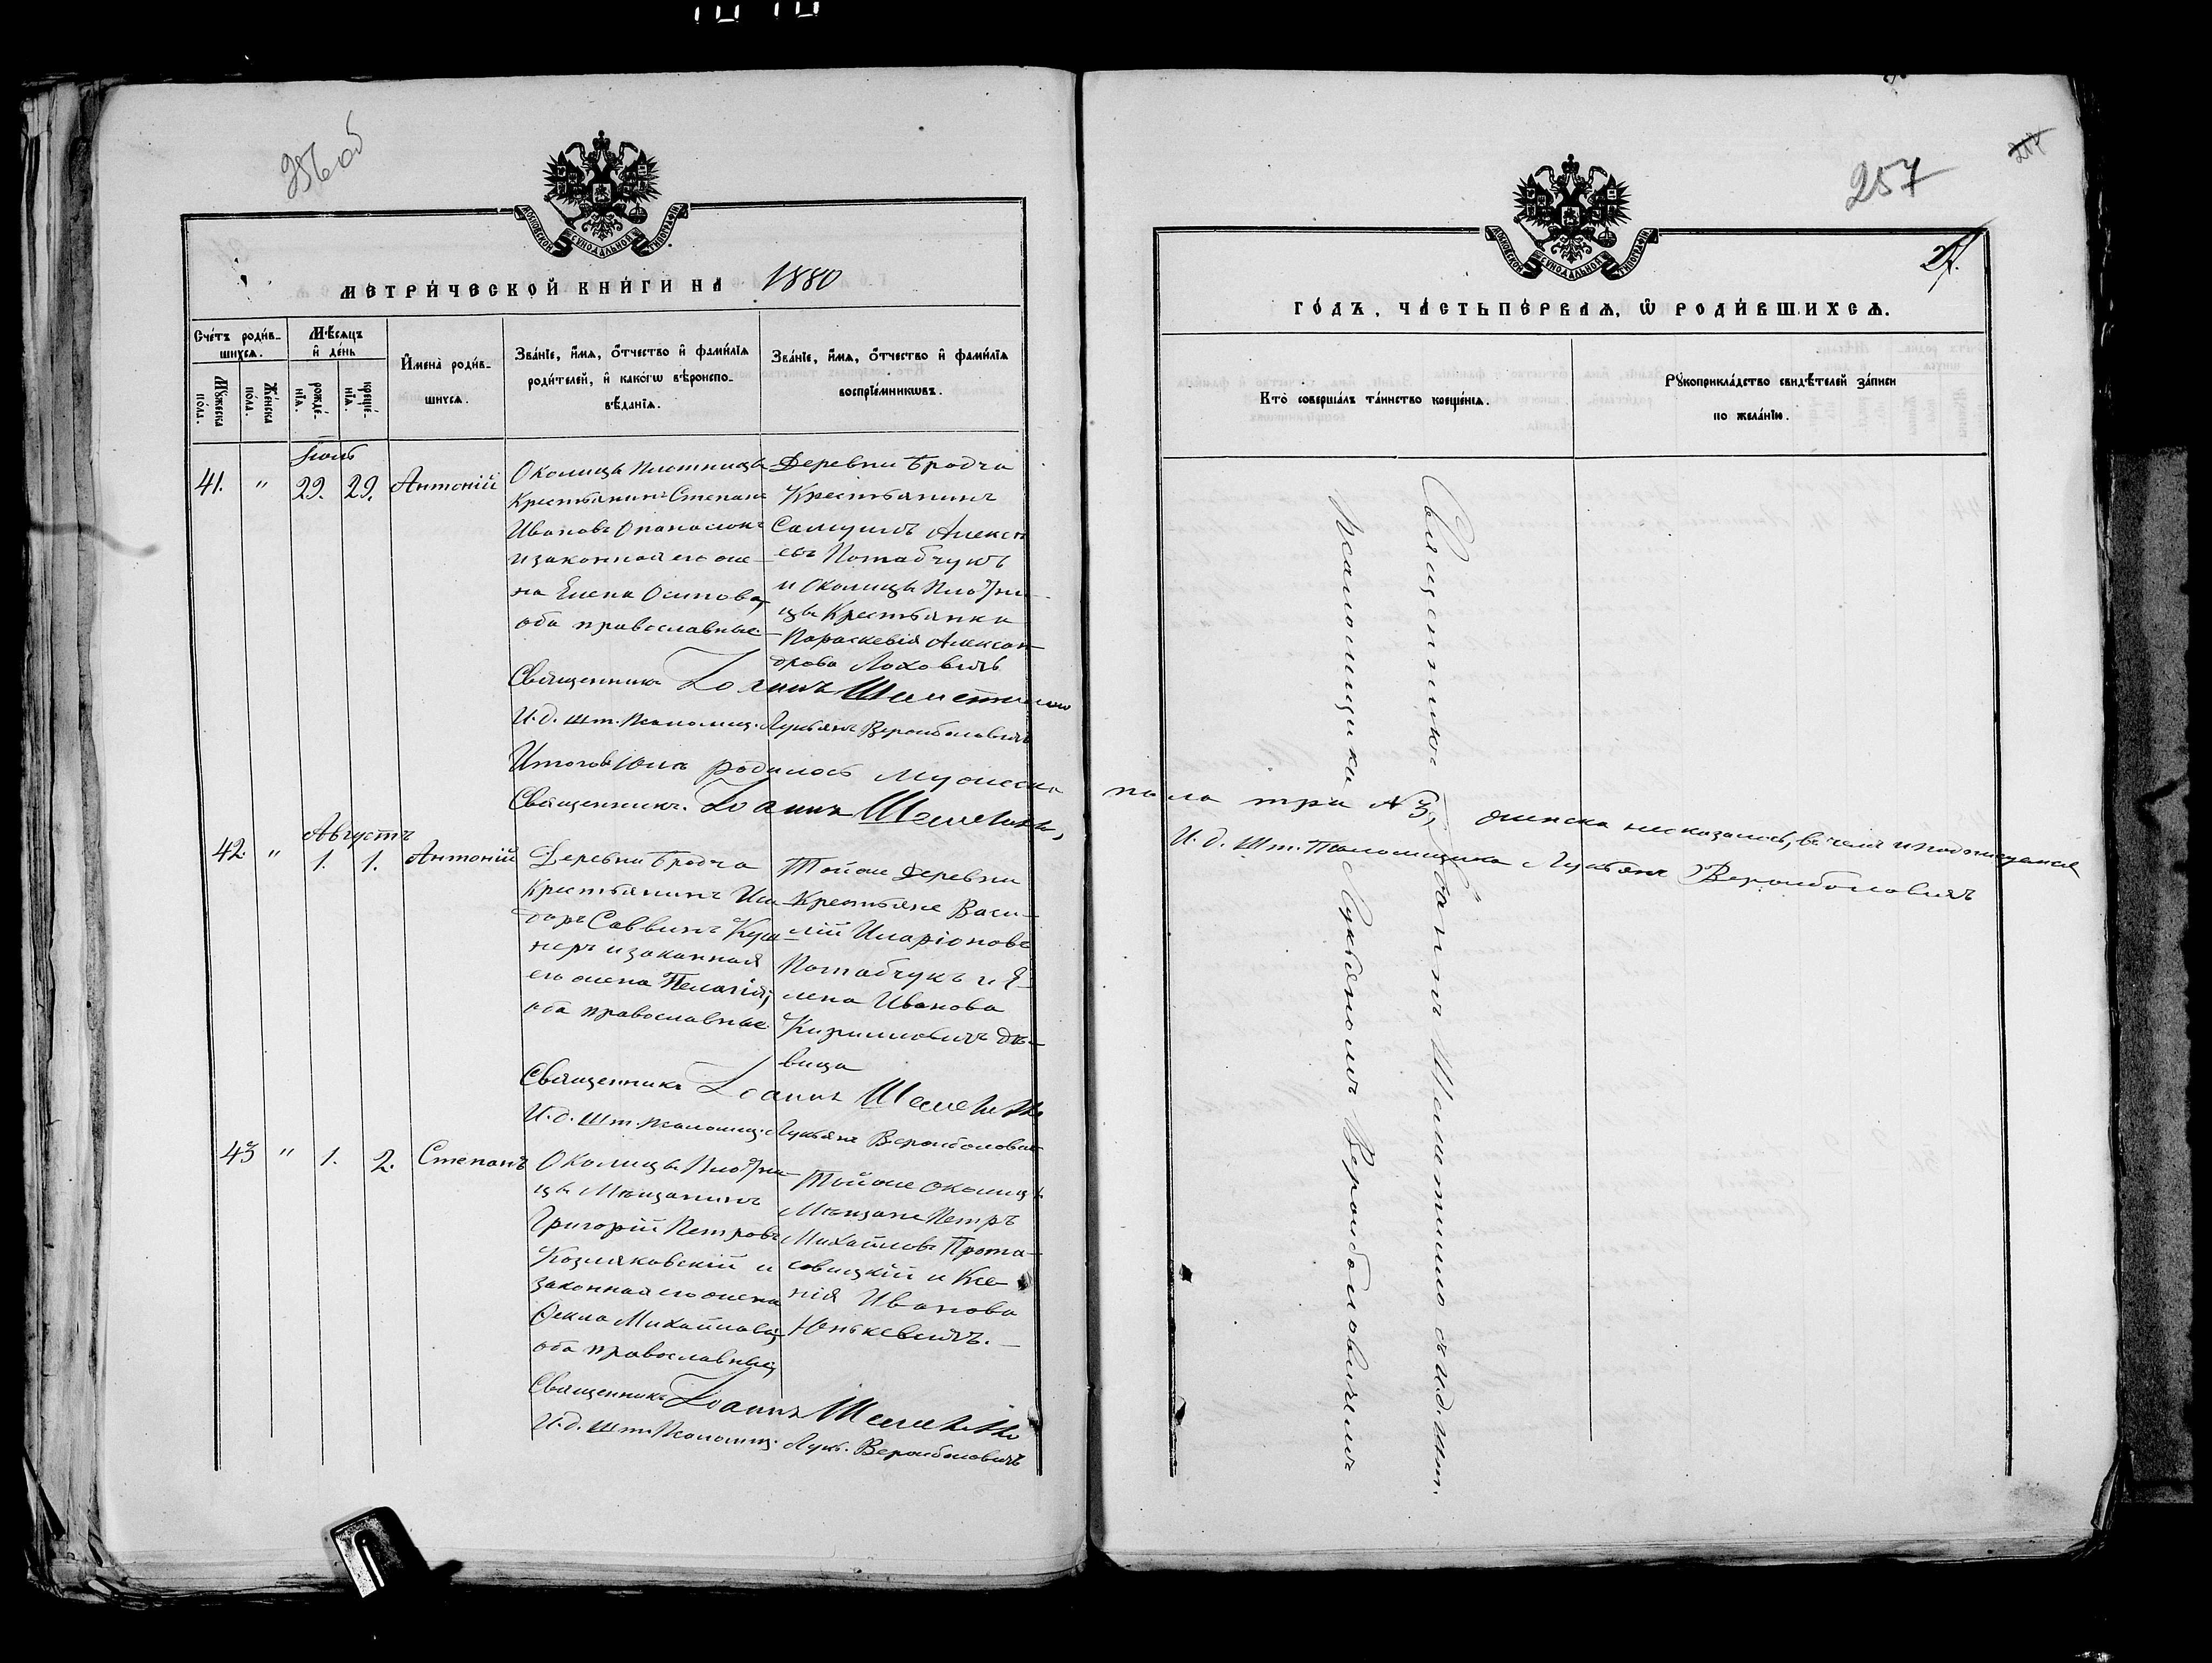 256 об
МОСКОВСКОЙ СѴНОДАЛЬНОЙ ТИПОГРАФІИ
МЕТРИ́ЧЕСКОЙ КНИ́ГИ НА 1880
Сче́тъ роди́в-
шихсѧ.
Мꙋ́жеска
по́ла.
Же́нска
по́ла.
Мѣ́сѧцъ
и҆ де́нь
рожде́-
нїѧ.
креще́-
нїѧ.
И҆мена̀ роди́в-
шихсѧ.
Зва́нїе, и҆́мѧ, ѻ҆́тчество и҆ фамѝлїѧ
роди́телей, и҆ како́гѡ вѣроиспо-
вѣ́данїѧ.
Зва́нїе, и҆́мѧ, ѻ҆́тчество и҆ фамѝлїѧ
воспрїе́мникѡвъ.
Іюль
41. " 29. 29. Антоній
Околицы Плотницы
Крестьянинъ Степанъ
Ивановъ Опанасюкъ
и законная его же-
на Елена Осипова,
оба православные.
Деревни Бродча
Крестьянинъ
Самуилъ Алексѣ
евъ Потабчукъ
и Околицы Плотни-
цы Крестьянка
Параскевія Алексан-
дрова Лаховичъ
Священникъ Іоаннъ Шеметилло
И.д. шт. Псаломщ. Лукьянъ Вержболовичъ
Итого въ Іюлѣ родилось мужеска
Священникъ Іоаннъ Шеметилло,
Августъ
42. " 1. 1. Антоній
Деревни Бродча
Крестьянинъ Иси-
доръ Саввинъ Куш-
неръ и законная
его жена Пелагія;
оба православные
Тойже Деревни
Крестьяне Васи-
лій Иларіоновъ
Потабчукъ и Е-
лена Иванова
Кирилловичъ дѣ-
вица
Священникъ Іоаннъ Шеметилло
И.д. шт. псаломщ. Лукьянъ Вержболович
43 " 1. 2. Степанъ
Околицы Плотни-
цы Мѣщанинъ
Григорій Петровъ
Козляковскій и
законная его жена
Ѳекла Михайлова,
оба православные,
Тойже околицы
Мѣщане Петръ
Михайловъ Прота-
совицкій и Ксе-
нія Иванова
Юнькевичъ.
Священникъ Іоаннъ Шеметилло
И.д. шт. Псаломщ. Лук. Вержболовичъ
257
217
МОСКОВСКОЙ СѴНОДАЛЬНОЙ ТИПОГРАФІИ
ГО́ДЪ, ЧА́СТЬ ПЕ́РВАѦ, Ѡ҆ РОДИ́ВШИХСѦ.
Кто̀ соверша́лъ та́инство креще́нїѧ.
Рꙋкоприкла́дство свидѣ́телей за́писи
по жела́нїю.
Священникъ Іоаннъ Шеметилло съ и.д. шт.
Псаломщика Лукьяномъ Вержболовичемъ
пола три № 3, женска не оказалось, въ чемъ и подписуемся
И.д. Шт. Псаломщика Лукьянъ Вержболовичъ